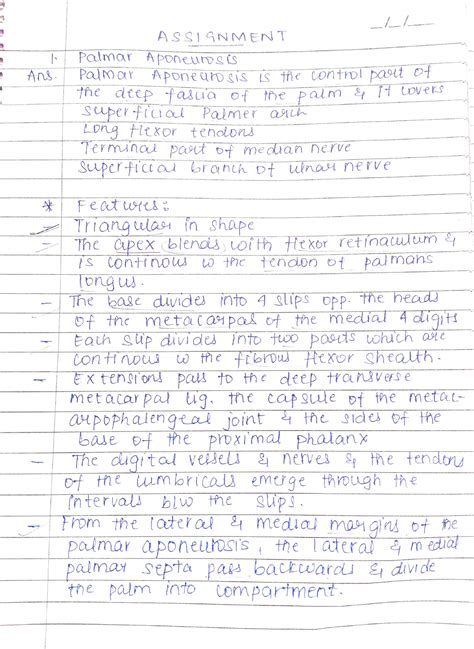 _/_/__
ASSIGNMENT
1. Palmar Aponeurosis
Ans. Palmar Aponeurosis is the control part of
the deep fascia of the palm & It covers
superficial Palmer arch
Long flexor tendons
Terminal part of median nerve
superficial branch of ulnar nerve
* Features:
- Triangular in shape
- The apex blends with flexor retinaculum &
is continous w the tendon of palmans
longus.
- The base divides into 4 slips opp. the heads
of the metacarpal of the medial 4 digits
- Each slip divides into two parts which are
continous w the fibrous flexor shealth.
- Extensions pass to the deep transverse
metacarpal lig. the capsule of the metac-
arpophalengeal joint & the sides of the
base of the proximal phalanx
- The digital vessels & nerves & the tendons
of the lumbricals emerge through the
intervals b/w the slips.
- From the lateral & medial margins of the
palmar aponeurosis, the lateral & medial
palmar septa pass backwards & divide
the palm into compartment.